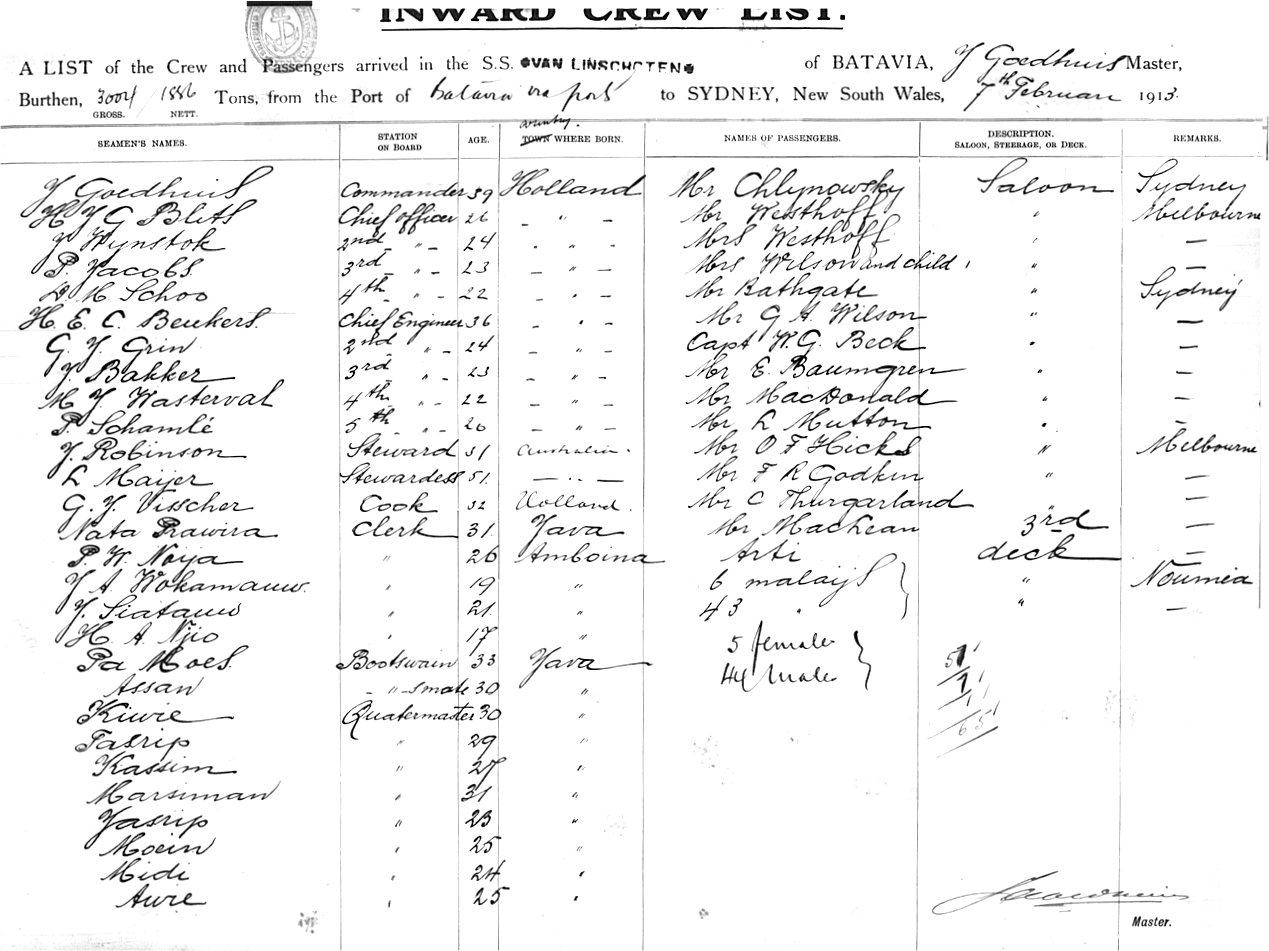 INWARD CREW LIST.
A LIST of the Crew and Passengers arrived in the S.S. VAN LINSCHOTEN of BATAVIA, J Goedhuis Master,
Burthen, 3004 / 1886 Tons, from the Port of Batavia via ports to SYDNEY, New South Wales, 7th Februari 1913.
GROSS. NETT.
SEAMEN'S NAMES. STATION ON BOARD AGE. country. TOWN WHERE BORN. NAMES OF PASSENGERS. DESCRIPTION. SALOON, STEERAGE, OR DECK. REMARKS.
J Goedhuis Commander 39 Holland Mr Chlynowsky Saloon Sydney
H J G Blits Chief officer 26 " Mr Westhoff " Melbourne
J Wynstok 2nd " 24 " Mrs Westhoff " —
P. Jacobs 3rd " 23 " Mrs Wilson and child " —
D. M. Schoo 4th " 22 " Mr Bathgate " Sydney
H. E. C. Beukers Chief Engineer 36 " Mr G A Wilson " —
G. J. Grin 2nd " 24 " Capt W. G. Beck " —
J. Bakker 3rd " 23 " Mr E. Baumgren " —
M J. Wasterval 4th " 22 " Mr MacDonald " —
P. Schamlé 5th " 20 " Mr L Mutton " —
J. Robinson Steward 31 Australia. Mr O F Hicks " Melbourne
L Maijer Stewardess 51. " Mr F R Godkin " —
G. J. Visscher Cook 32 Holland. Mr C Thurgarland —
Nata Prawira Clerk 31 Java Mr MacKean 3rd —
P. W. Noija " 26 Amboina Arti deck —
J A Wokamauw. " 19 " 6 malaijs " Noumea
J. Siatauw " 21 " 43 " " —
H. A Njio " 17 "
5 female
Pa Moes. Bootswain 33 Java 44 male 51
Assan " smate 30 " 7
Kiwie Quatermaster 30 " 65
Tasrip " 29 "
Kassim " 27 "
Marsiman " 31 "
Jasrip " 23 "
Moein " 25 "
Midi " 24 "
Awie " 25 "
Master.